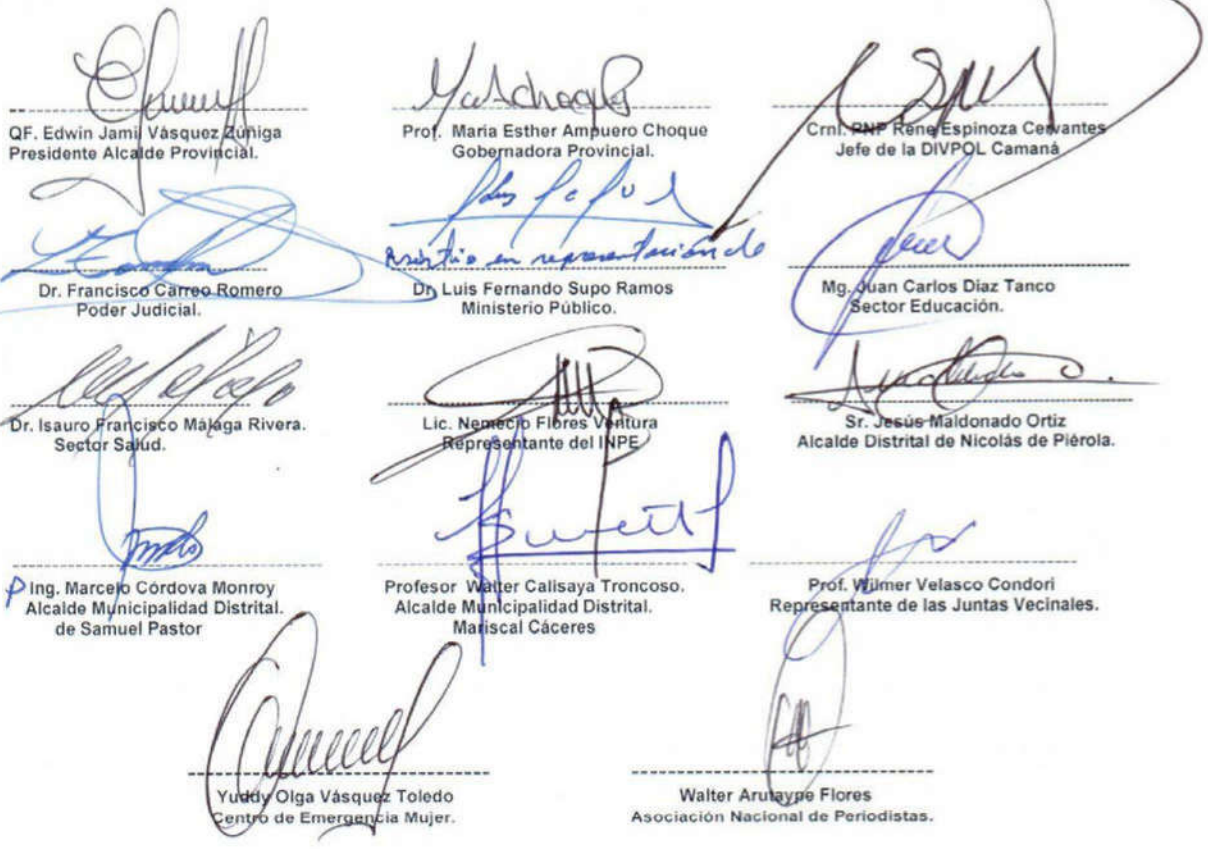 QF. Edwin Jamil Vásquez Zúñiga
Presidente Alcalde Provincial.
Prof. Maria Esther Ampuero Choque
Gobernadora Provincial.
Crnl. PNP Rene Espinoza Cervantes
Jefe de la DIVPOL Camaná
Dr. Francisco Carreo Romero
Poder Judicial.
Asistio en representación de
Dr. Luis Fernando Supo Ramos
Ministerio Público.
Mg. Juan Carlos Diaz Tanco
Sector Educación.
Dr. Isauro Francisco Málaga Rivera.
Sector Salud.
Lic. Nemecio Flores Ventura
Representante del INPE
Sr. Jesús Maldonado Ortiz
Alcalde Distrital de Nicolás de Piérola.
P Ing. Marcelo Córdova Monroy
Alcalde Municipalidad Distrital.
de Samuel Pastor
Profesor Walter Calisaya Troncoso.
Alcalde Municipalidad Distrital.
Mariscal Cáceres
Prof. Wilmer Velasco Condori
Representante de las Juntas Vecinales.
Yuddy Olga Vásquez Toledo
Centro de Emergencia Mujer.
Walter Arutaype Flores
Asociación Nacional de Periodistas.